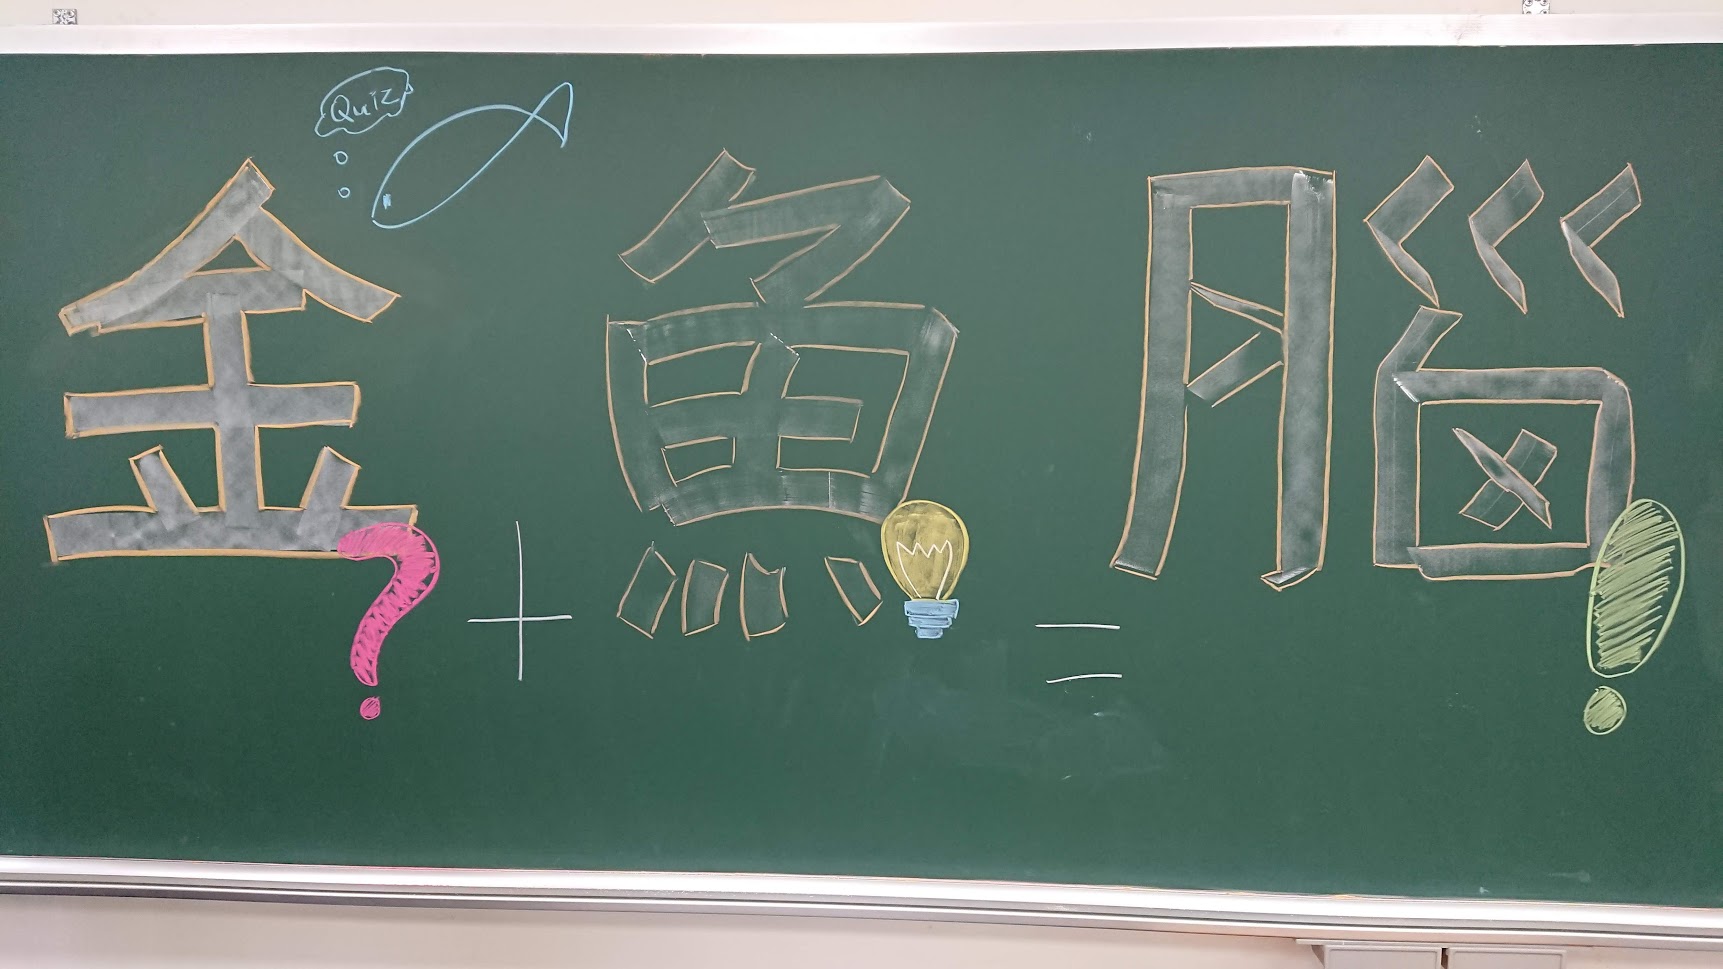 Quiz
金?+魚=腦!